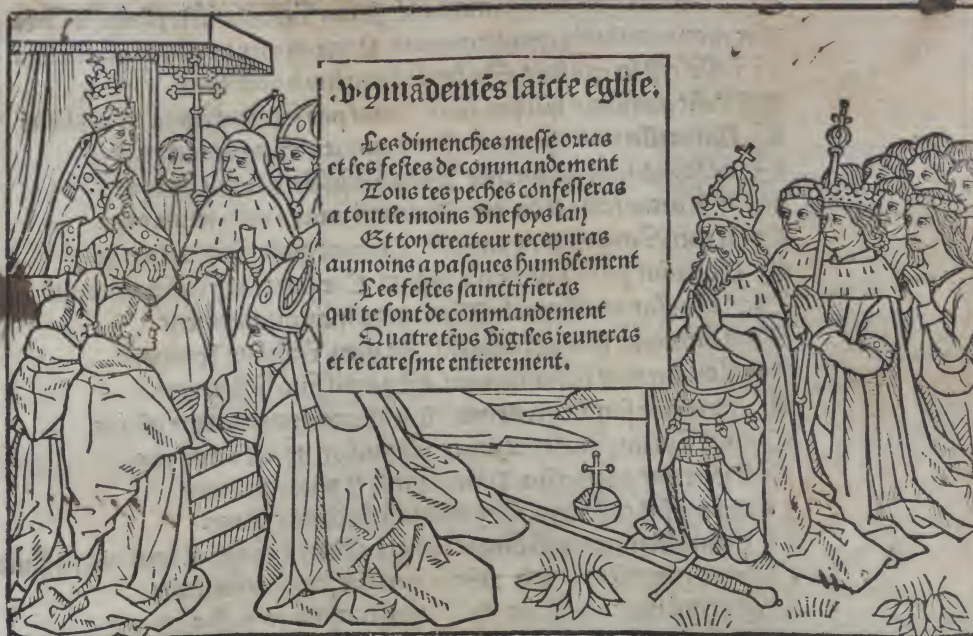 .v. ꝯmādemēs saīcte eglise.
Les dimenches messe orras
et les festes de commandement
Tous tes peches confesseras
a tout le moins vnefoys lan
Et ton createur recepuras
aumoins a pasques humblement
Les festes sainctifieras
qui te sont de commandement
Quatre tēps vigiles ieuneras
et le caresme entierement.